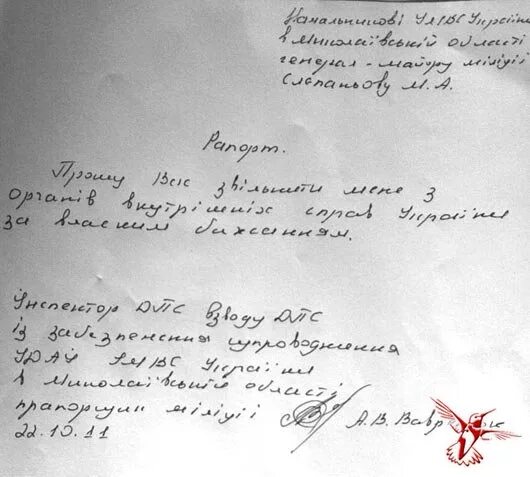 Начальникові УМВС України
в Миколаївській області
генерал-майору міліції
Слєпаньову М.А.
Рапорт.
Прошу Вас звільнити мене з
органів внутрішніх справ України
за власним бажанням.
Інспектор ДПС взводу ДПС
із забезпечення супроводження
УДАІ УМВС України
в Миколаївській області
прапорщик міліції
А.В.
22.10.11